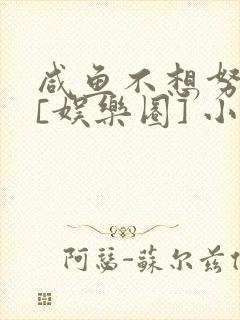 咸鱼不想努
[娱樂圈] 小
阿瑟-蘇尔兹